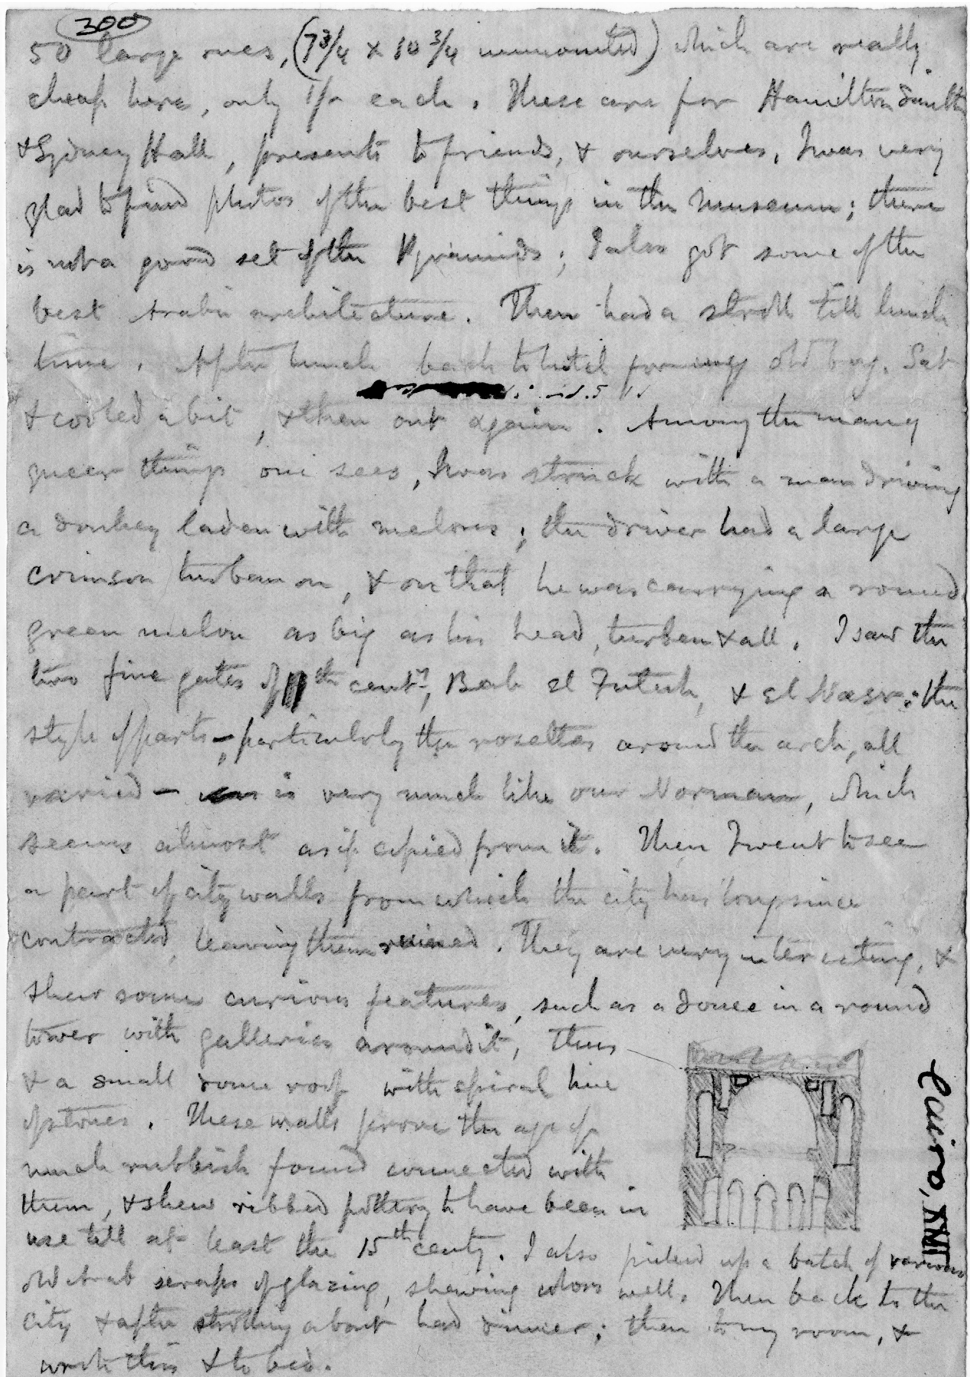 300
50 large ones, (7 3/4 x 10 3/4 unmounted) which are really
cheap here, only 1/- each. These are for Hamilton Smith
& Sydney Hall, presents to friends, & ourselves. I was very
glad to find photos of the best things in the Museum; there
is not a good set of the Pyramids; I also got some of the
best Arabic architecture. Then had a stroll till lunch
time. After lunch back to hotel for my old bag. Sat
& cooled a bit, & then out again. Among the many
queer things one sees, I was struck with a man driving
a donkey laden with melons; the driver had a large
crimson turban on, & on that he was carrying a round
green melon as big as his head, turban & all. I saw the
two fine gates of 11th centy, Bab el Futuh, & el Nasr: the
style of parts – particularly the rosettes around the arch, all
varied – is very much like our Norman, which
seems almost as if copied from it. Then I went to see
a part of city walls from which the city has long since
contracted, leaving them ruined. They are very interesting, &
shew some curious features, such as a dome in a round
tower with galleries around it, thus
& a small dome roof with spiral line
of stones. These walls prove the age of
much rubbish found connected with
them, & shew ribbed pottery to have been in
use till at least the 15th centy. I also picked up a batch of various
old Arab scraps of glazing, shewing colors well. Then back to the
city & after strolling about had dinner; then to my room, &
wrote this & to bed.
Cairo,